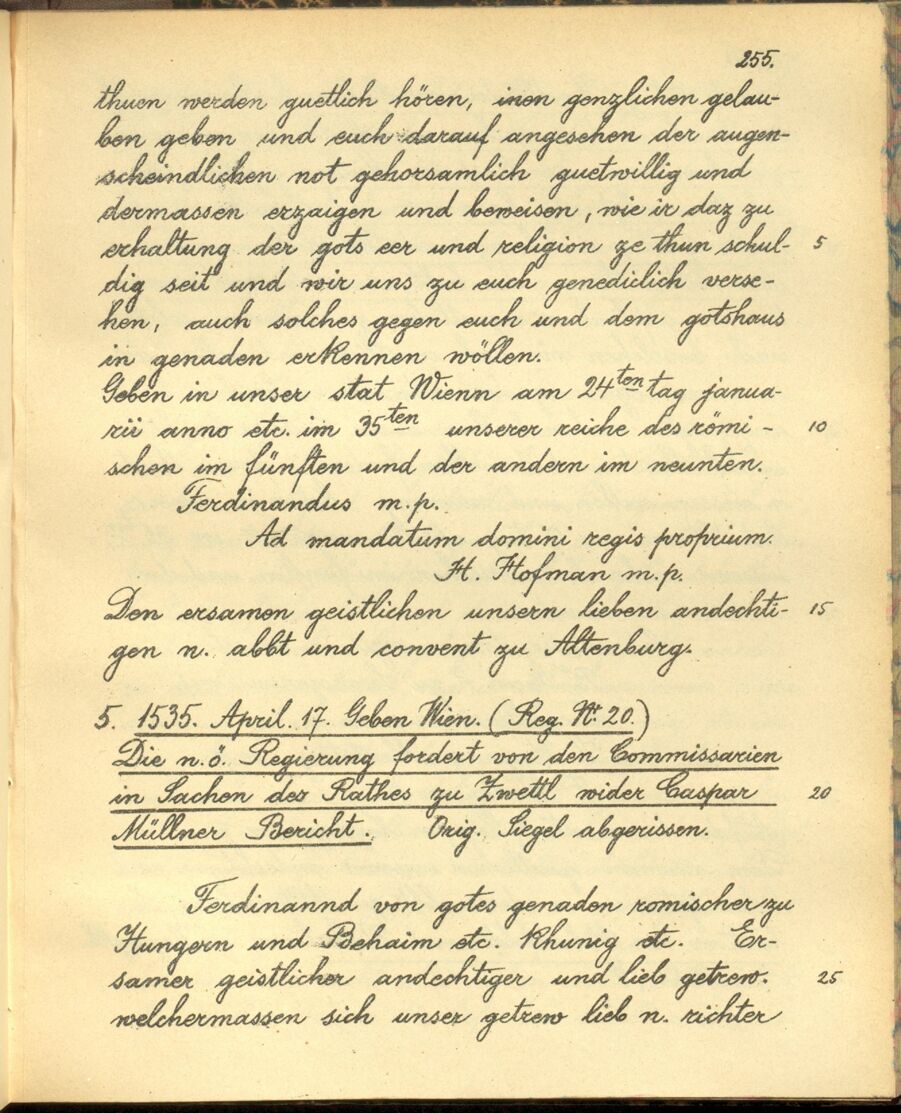 255.
thuen werden guetlich hören, inen genzlichen gelau-
ben geben und euch darauf angesehen der augen-
scheindlichen not gehorsamlich guetwillig und
dermassen erzaigen und beweisen, wie ir daz zu
erhaltung der gots eer und religion ze thun schul- 5
dig seit und wir uns zu euch genediclich verse-
hen, auch solches gegen euch und dem gotshaus
in genaden erkennen wöllen.
Geben in unser stat Wienn am 24ten tag janua-
rii anno etc. im 35ten unserer reiche des römi- 10
schen im fünften und der andern im neunten.
Ferdinandus m.p.
Ad mandatum domini regis proprium.
H. Hofman m.p.
Den ersamen geistlichen unsern lieben andechti- 15
gen n. abbt und convent zu Altenburg.
5. 1535. April. 17. Geben Wien. (Reg. Nr. 20.)
Die n.ö. Regierung fordert von den Commissarien
in Sachen des Rathes zu Zwettl wider Caspar 20
Müllner Bericht. Orig. Siegel abgerissen.
Ferdinannd von gotes genaden romischer zu
Hungern und Behaim etc. khunig etc. Er-
samer geistlicher andechtiger und lieb getrew. 25
welchermassen sich unser getrew lieb n. richter